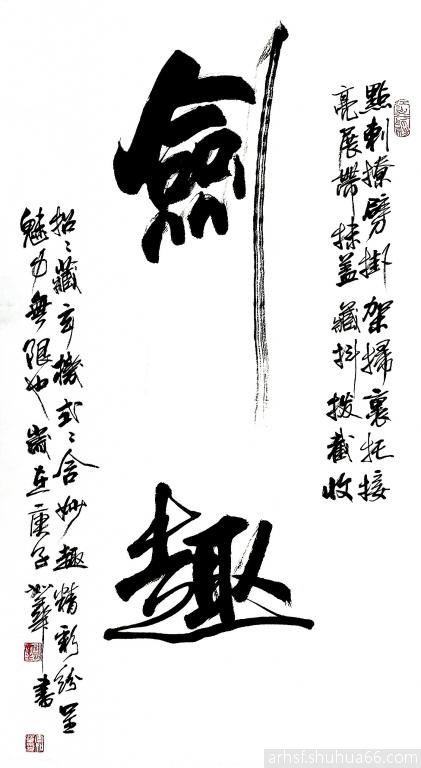 點刺撩劈掛架掃裏托接
亮展帶抹蓋藏抖撥截收
劍趣
招々藏玄機式々含妙趣精彩紛呈
魅力無限也歲在庚子
書
arhsf.shuhua66.com